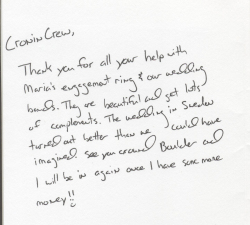 Cronin Crew,
Thank you for all your help with
Maria's engagement ring & our wedding
bands. They are beautiful and get lots
of complements. The wedding in Sweden
turned out better than we could have
imagined. See you around Boulder and
I will be in again once I have some more
money!!